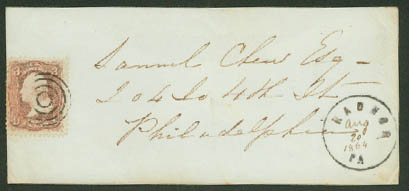 Samuel Chew Esq
204 So 4th St
Philadelphia
RADNOR
Aug
20
1864
PA